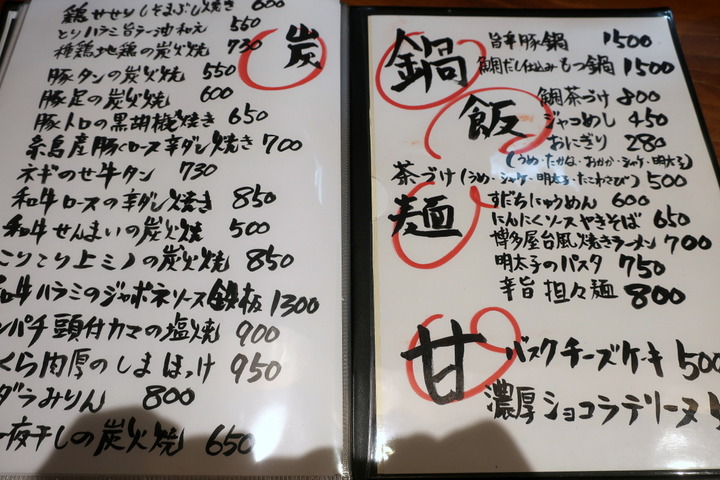 炭
鶏せせりしそまぶし焼き 600
とりハラミ旨ラー油和え 550
種鶏地鶏の炭火焼 730
豚タンの炭火焼 550
豚足の炭火焼 600
豚トロの黒胡椒焼き 650
糸島産豚ロース辛ダン焼き 700
ネギのせ牛タン 730
和牛ロースの辛ダン焼き 850
和牛せんまいの炭火焼 500
こりこり上ミノの炭火焼 850
和牛ハラミのジャポネソース鉄板 1300
ンパチ頭付カマの塩焼 900
くら肉厚のしまほっけ 950
ダラみりん 800
一夜干しの炭火焼 650
鍋
旨辛豚鍋 1500
鯛だし仕込みもつ鍋 1500
飯
鯛茶づけ 800
ジャコめし 450
おにぎり 280
(うめ・たかな・おかか・シャケ・明太子)
茶づけ(うめ・シャケ・明太子・たこわさび) 500
麺
すだちにゅうめん 600
にんにくソースやきそば 650
博多屋台風焼きラーメン 700
明太子のパスタ 750
辛旨担々麺 800
甘
バスクチーズケーキ 500
濃厚ショコラテリーヌ